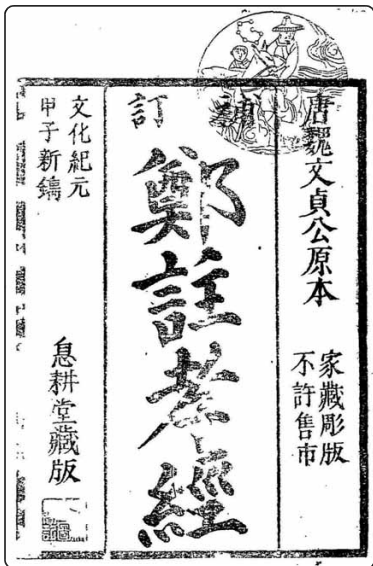 唐魏文貞公原本
家藏彫版
不許售市
訂
鄭註孝經
文化紀元
甲子新鐫
息耕堂藏版